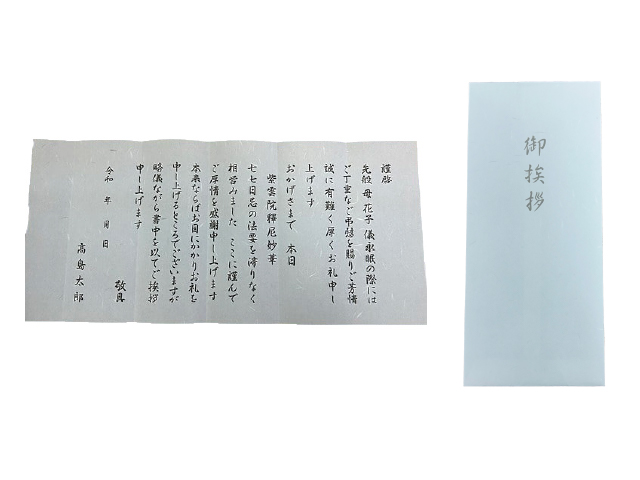 謹啓
先般 母 花子 儀永眠の際には
ご丁重なご弔慰を賜りご芳情
誠に有難く厚くお礼申し
上げます
おかげさまで 本日
紫雲院釋尼妙華
七七日忌の法要を滞りなく
相営みました ここに謹んで
ご厚情を感謝申し上げます
本来ならばお目にかかりお礼を
申し上げるところでございますが
略儀ながら書中を以てご挨拶
申し上げます
敬具
令和 年 月 日
高島太郎
御挨拶